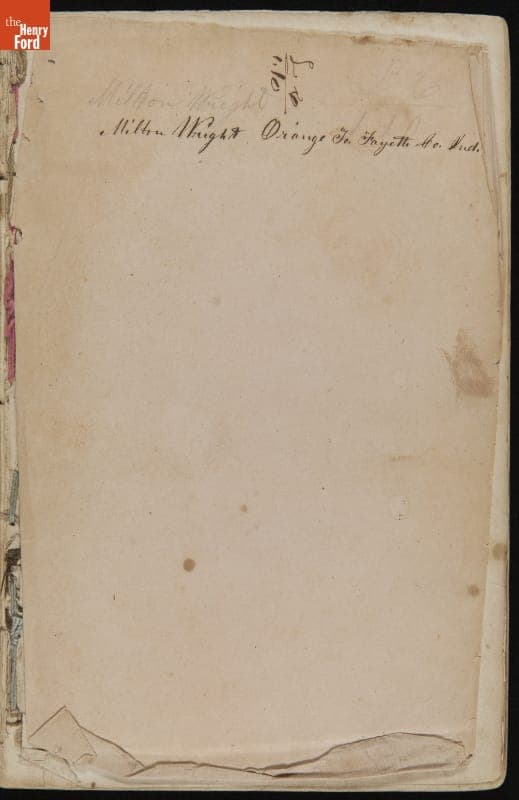 the
Henry
Ford
Milton Wright
Milton Wright Orange To. Fayette Co. Ind.